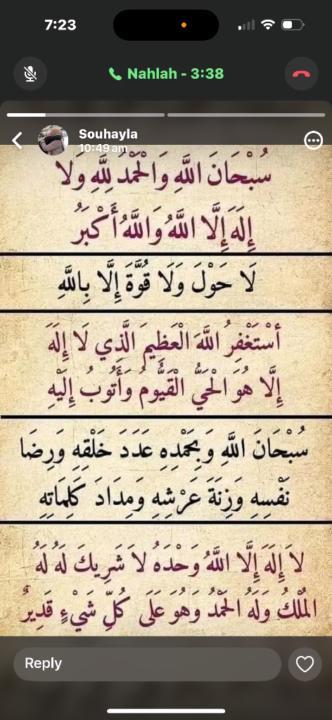 7:23
Nahlah - 3:38
Souhayla
10:49 am
سُبْحَانَ اللَّهِ وَالْحَمْدُ لِلَّهِ وَلَا
إِلَهَ إِلَّا اللَّهُ وَاللَّهُ أَكْبَرُ
لَا حَوْلَ وَلَا قُوَّةَ إِلَّا بِاللَّهِ
أَسْتَغْفِرُ اللَّهَ الْعَظِيمَ الَّذِي لَا إِلَهَ
إِلَّا هُوَ الْحَيُّ الْقَيُّومُ وَأَتُوبُ إِلَيْهِ
سُبْحَانَ اللَّهِ وَبِحَمْدِهِ عَدَدَ خَلْقِهِ وَرِضَا
نَفْسِهِ وَزِنَةَ عَرْشِهِ وَمِدَادَ كَلِمَاتِهِ
لَا إِلَهَ إِلَّا اللَّهُ وَحْدَهُ لَا شَرِيكَ لَهُ لَهُ
الْمُلْكُ وَلَهُ الْحَمْدُ وَهُوَ عَلَى كُلِّ شَيْءٍ قَدِيرٌ
Reply